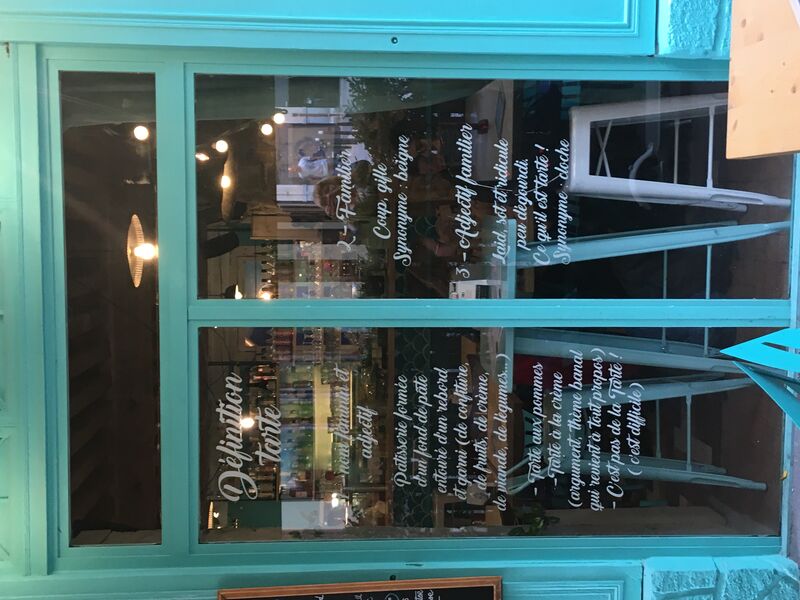 Définition
tarte
1 - nom féminin et
adjectif
Patisserie formée
d'un fond de pâte
entouré d'un rebord
et garni (de confiture,
de fruits, de crème,
de viande, de légumes...)
- Tarte aux pommes
- Tarte à la crème
(argument, thème banal
qui revient à tout propos)
- C'est pas de la Tarte !
(c'est difficile)
2 - Familier
Coup, gifle
Synonyme : beigne
3 - Adjectif familier
Laid, sot et ridicule
peu dégourdi.
Ce qu'il est tarte !
Synonyme : cloche